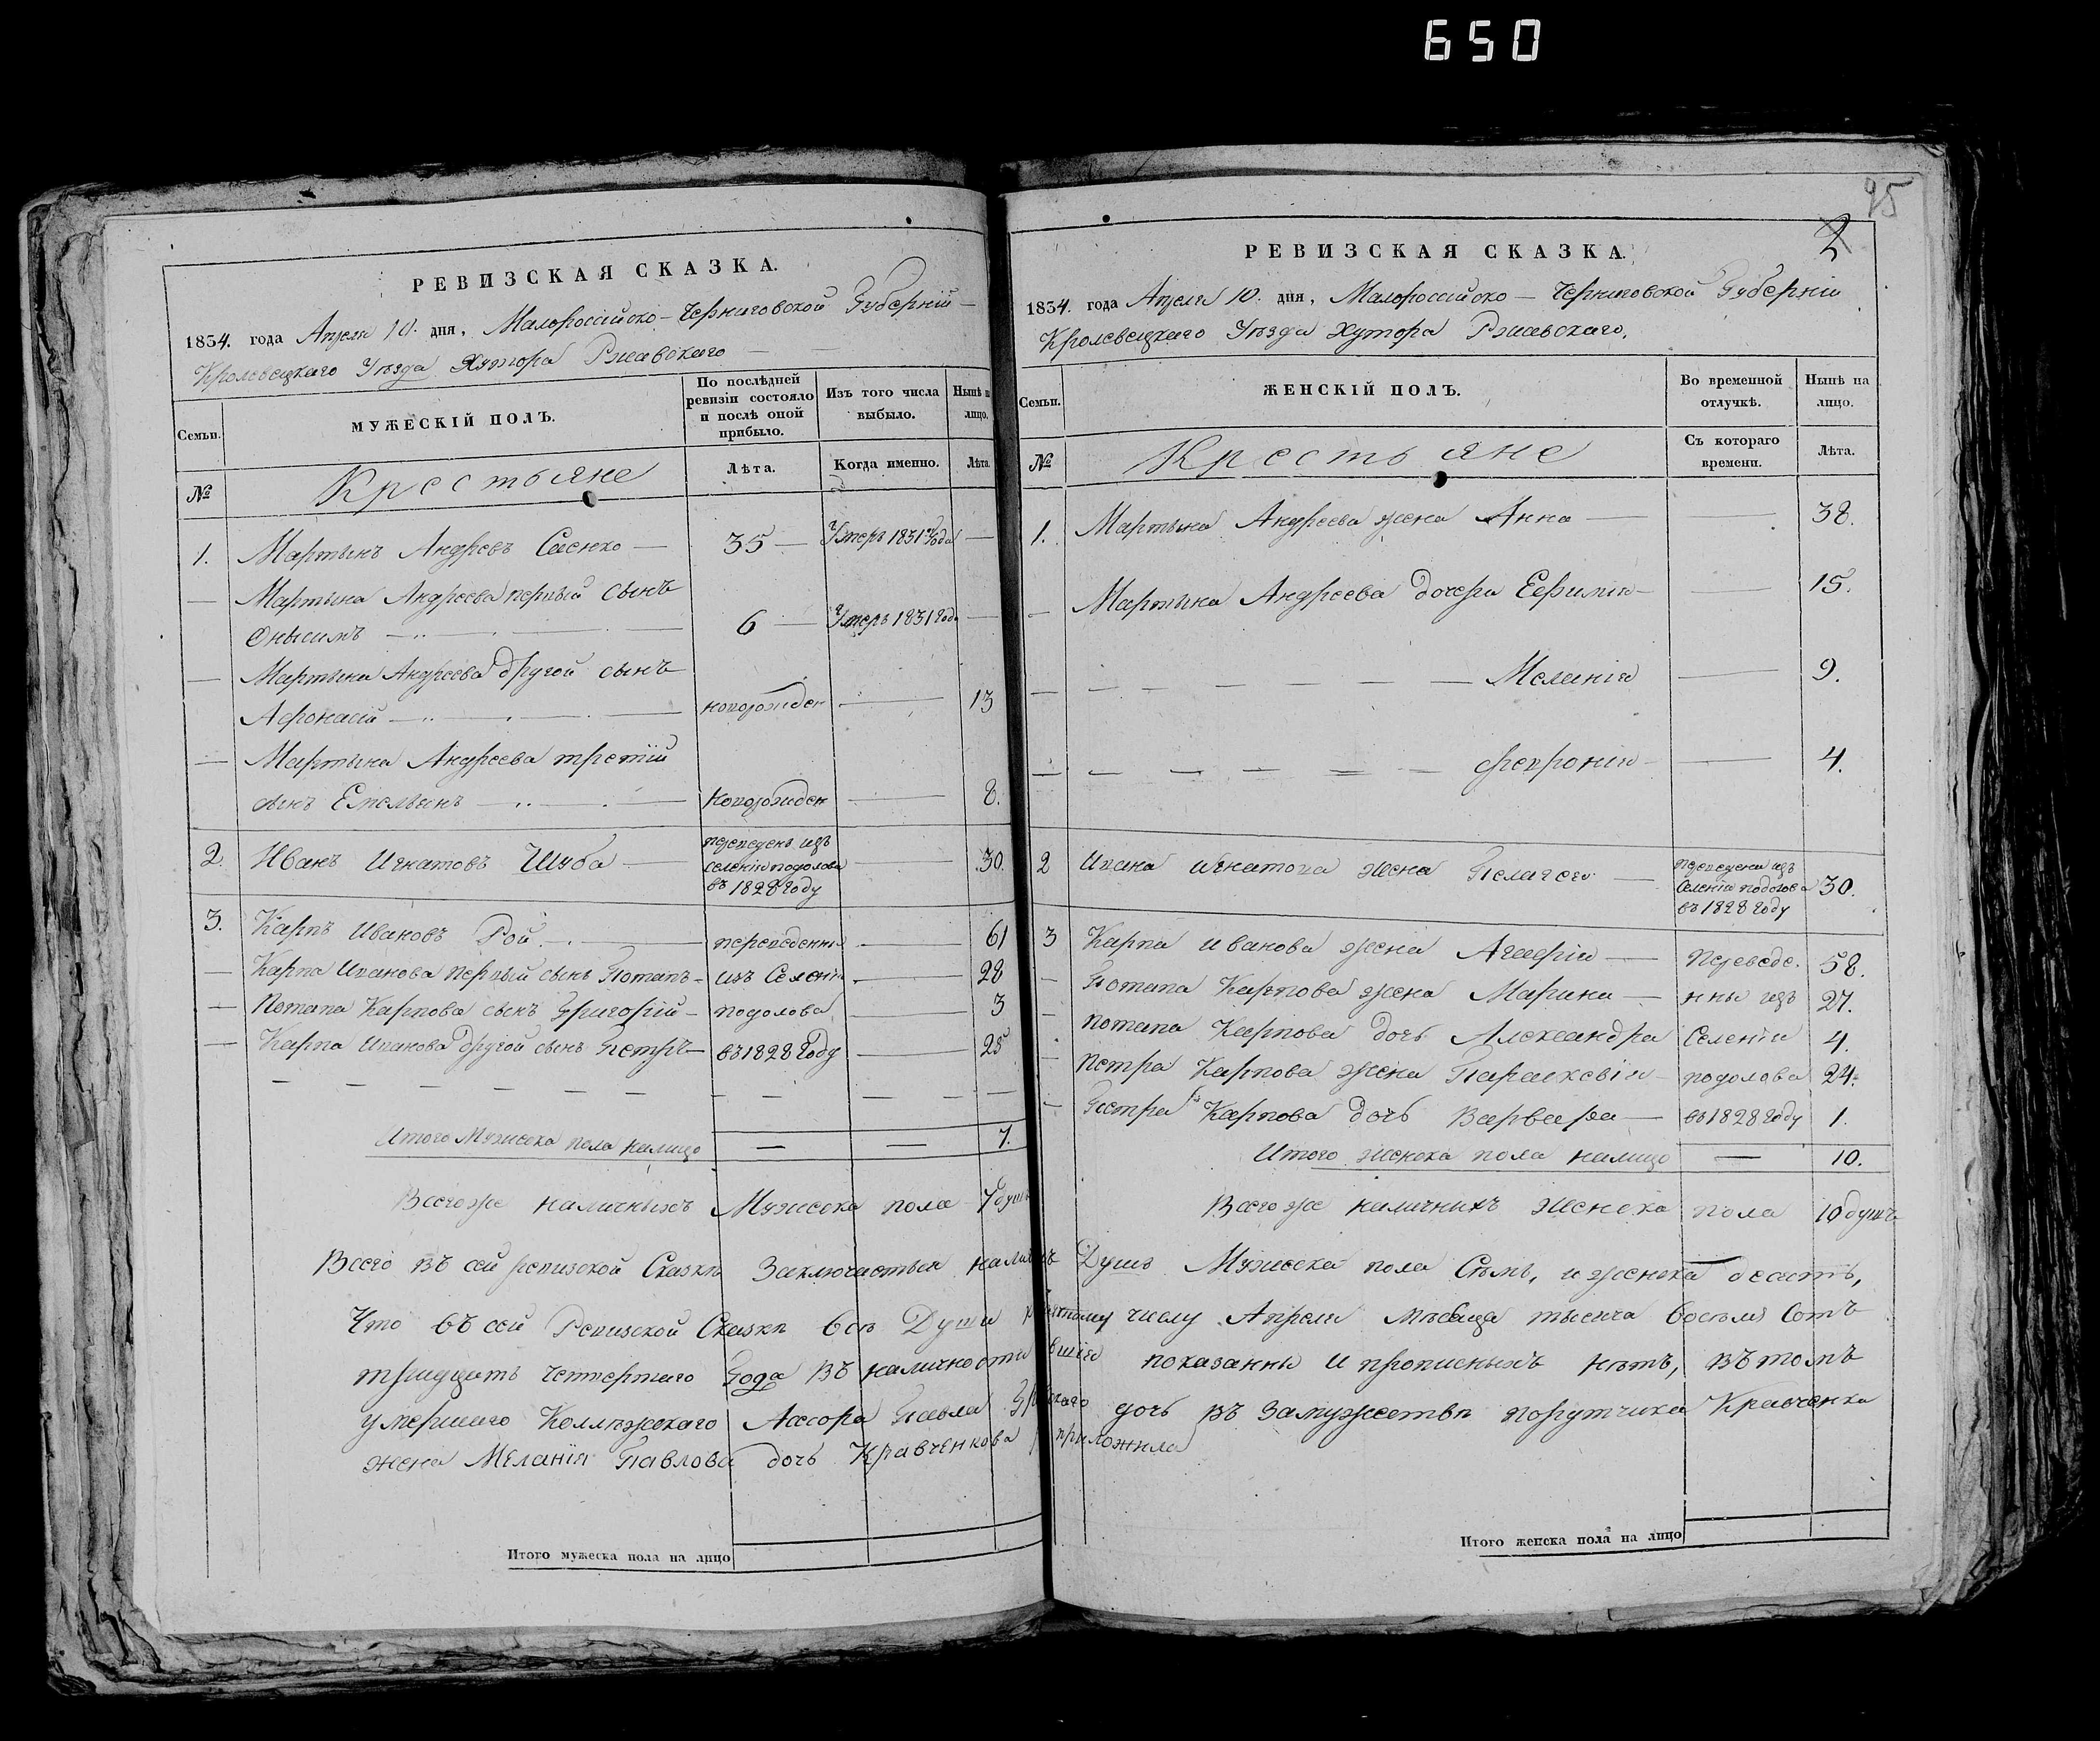 650
РЕВИЗСКАЯ СКАЗКА.
1834. года Апреля 10. дня, Малороссійско-Черниговской Губерніи
Кролевецкаго Уѣзда Хутора Ржавскаго
Семьи.
МУЖЕСКІЙ ПОЛЪ.
По послѣдней ревизіи состояло и послѣ оной прибыло.
Изъ того числа выбыло.
Нынѣ на лицо.
№
Крестьяне
Лѣта.
Когда именно.
Лѣта.
1. Мартынъ Андреевъ 35 Умеръ 1831 Года
Мартына Андреева первый сынъ
Онысимъ 6 Умеръ 1831 Года
Мартына Андреева другой сынъ
Афонасій новорожден 13
Мартына Андреева третій
сынъ Емельянъ новорожден 8.
2. Иванъ Игнатовъ Шуба переведенъ изъ селенія подолова въ 1828 Году 30.
3. Карпъ Ивановъ Рой. переведенны 61
Карпа Иванова первый сынъ Потапъ изъ Селенія 28
Потапа Карпова сынъ Григорій подолова 3
Карпа Иванова другой сынъ Петръ въ 1828 Году 25
Итого Мужеска пола налицо 7.
Всего же наличныхъ Мужеска пола 7 душъ
95
2
РЕВИЗСКАЯ СКАЗКА.
1834. года Апреля 10. дня, Малороссійско-Черниговской Губерніи
Кролевецкаго Уѣзда Хутора Ржавскаго.
Семьи.
ЖЕНСКІЙ ПОЛЪ.
Во временной отлучкѣ.
Нынѣ на лицо.
№
Крестьяне
Съ котораго времени.
Лѣта.
1. Мартына Андреева жена Анна 38.
Мартына Андреева дочери Ефимія 15.
Меланія 9.
Февронія 4.
2 Ивана Игнатова жена Пелагея переведена изъ Селенія подолова въ 1828 Году 30.
3 Карпа Иванова жена Агафія Переведе- 58.
Потапа Карпова жена Марина нны изъ 27.
Потапа Карпова дочь Александра Селенія 4.
Петра Карпова жена Параскевія подолова 24.
Петра Карпова дочь Варвара въ 1828 Году 1.
Итого женска пола налицо 10.
Всего же наличныхъ женска пола 10 душъ
Всего въ сей ревизской Сказкѣ Заключается Душъ Мужеска пола Семь, и женска десять,
Что въ сей Ревизской Сказкѣ все Души числу Апреля Мѣсяца тысяча восемь Сотъ
тридцать четвертаго Года въ наличности показанны и прописныхъ нѣтъ, въ томъ
умершаго Коллежскаго Павла дочь въ Замужествѣ порутчика Кравченка
жена Меланія Павлова дочь Кравченкова приложила
Итого мужеска пола на лицо
Итого женска пола на лицо